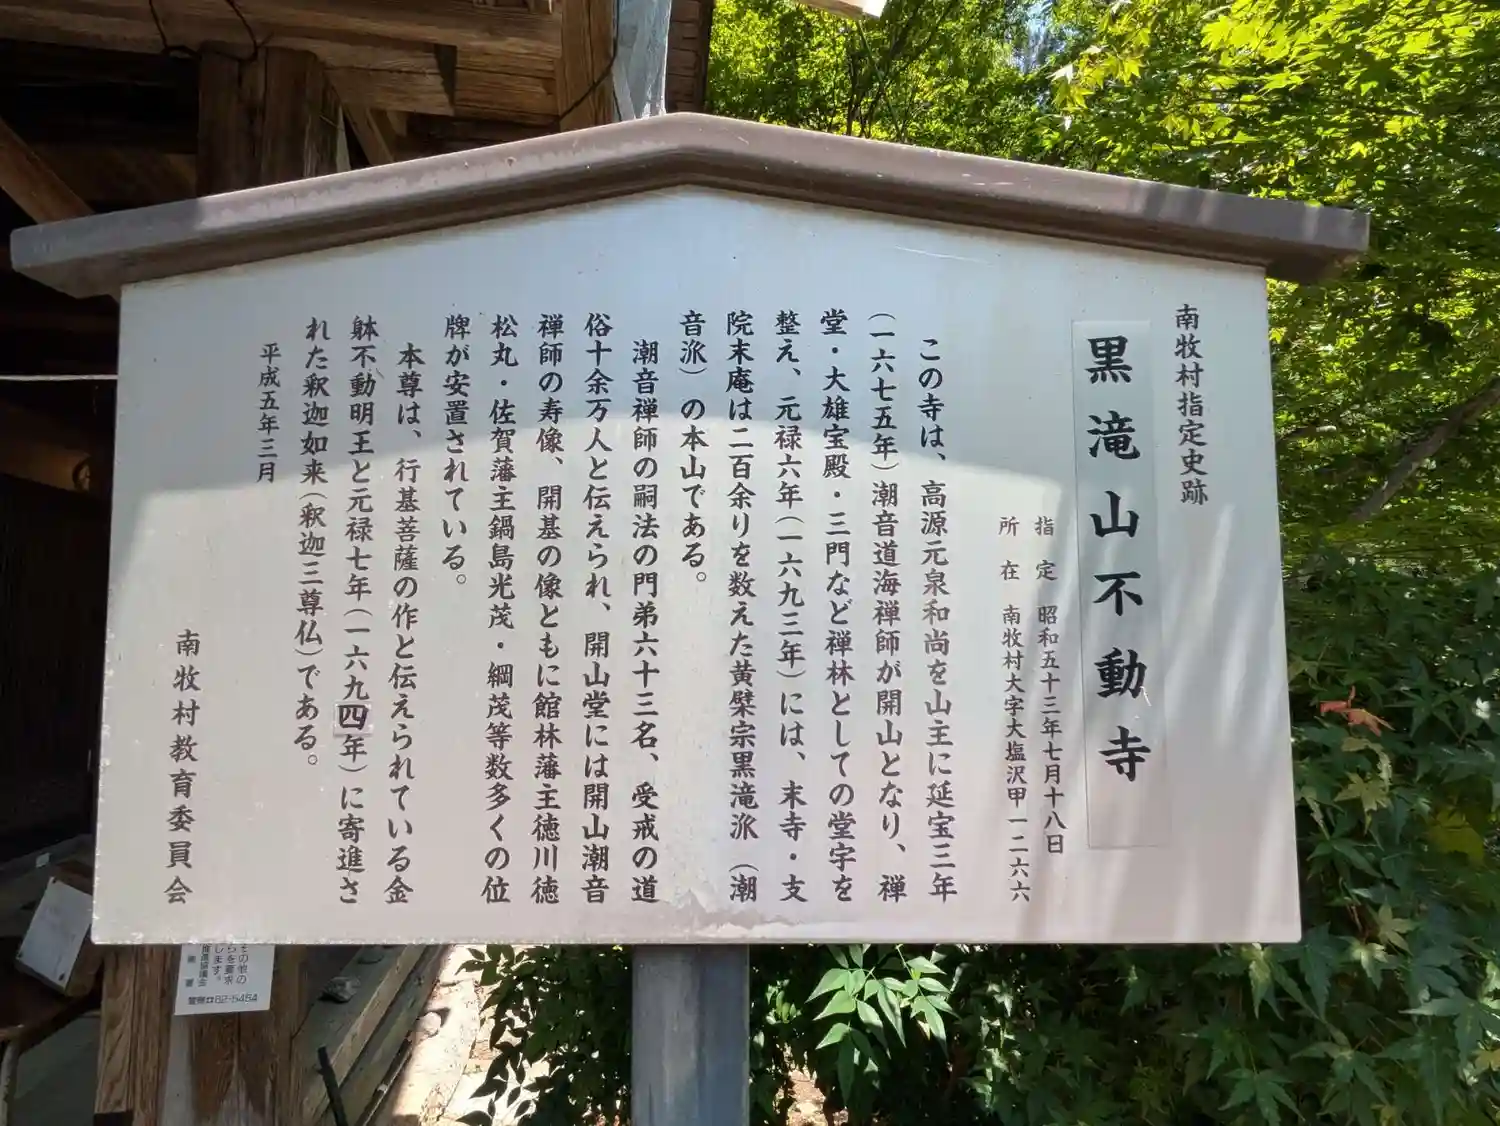 南牧村指定史跡
黒滝山不動寺
指定 昭和五十三年七月十八日
所在 南牧村大字大塩沢甲一二六六
この寺は、高源元泉和尚を山主に延宝三年
(一六七五年)潮音道海禅師が開山となり、禅
堂・大雄宝殿・三門など禅林としての堂宇を
整え、元禄六年(一六九三年)には、末寺・支
院末庵は二百余りを数えた黄檗宗黒滝派(潮
音派)の本山である。
潮音禅師の嗣法の門弟六十三名、受戒の道
俗十余万人と伝えられ、開山堂には開山潮音
禅師の寿像、開基の像ともに館林藩主徳川徳
松丸・佐賀藩主鍋島光茂・綱茂等数多くの位
牌が安置されている。
本尊は、行基菩薩の作と伝えられている金
躰不動明王と元禄七年(一六九四年)に寄進さ
れた釈迦如来(釈迦三尊仏)である。
平成五年三月
南牧村教育委員会
その他の
らを要求
します。
82-5454